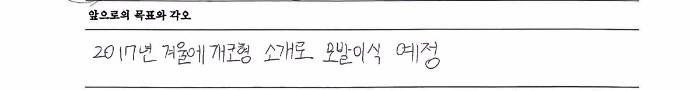 앞으로의 목표와 각오
2017년 겨울에 개코형 소개로 모발이식 예정